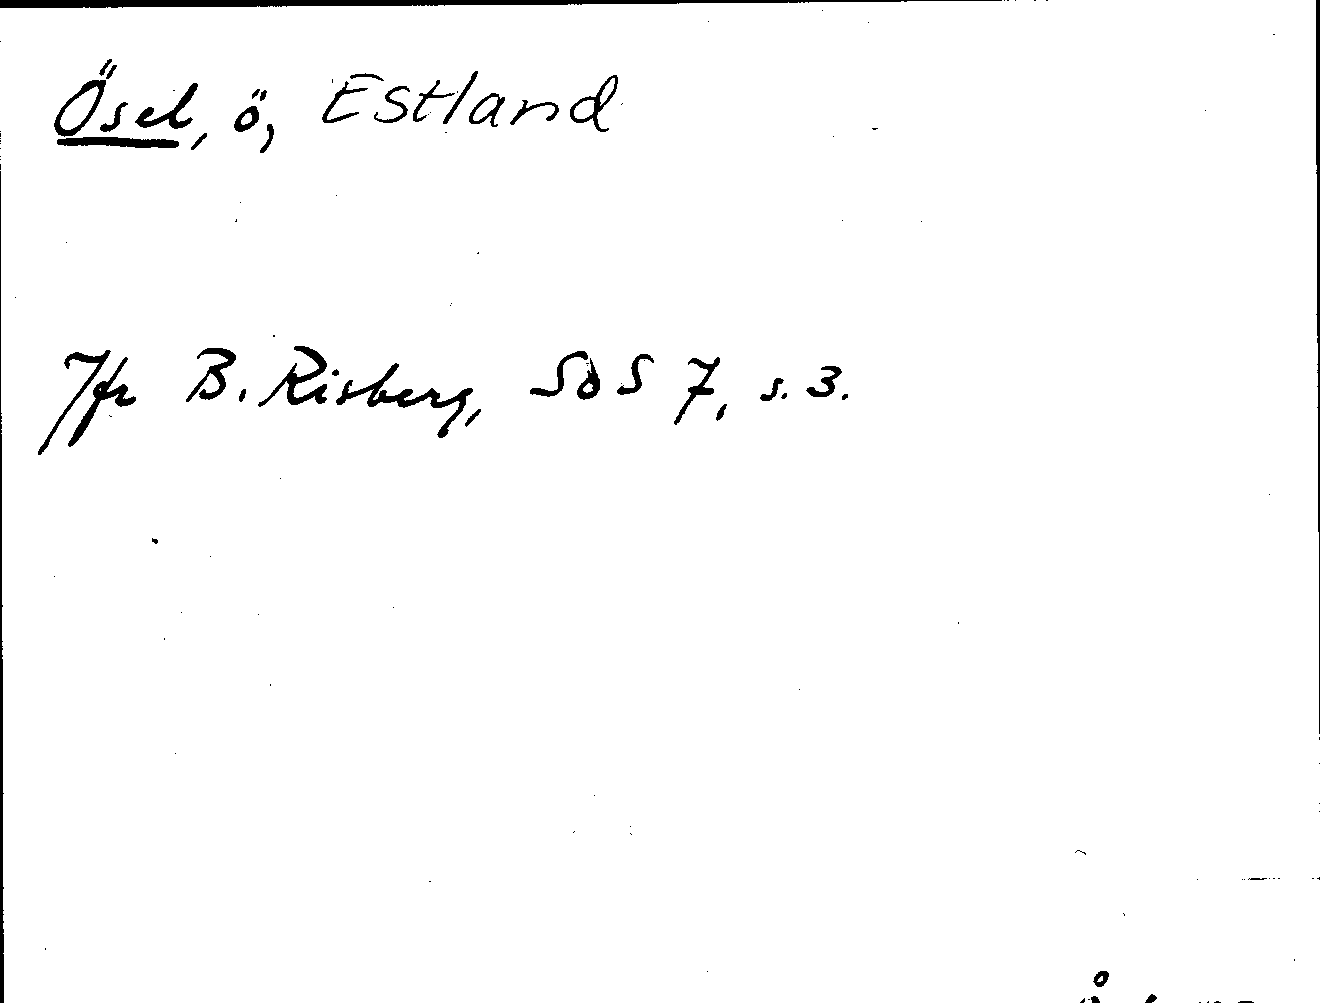 Ösel, ö, Estland
Jfr B. Risberg, SoS 7, s. 3.